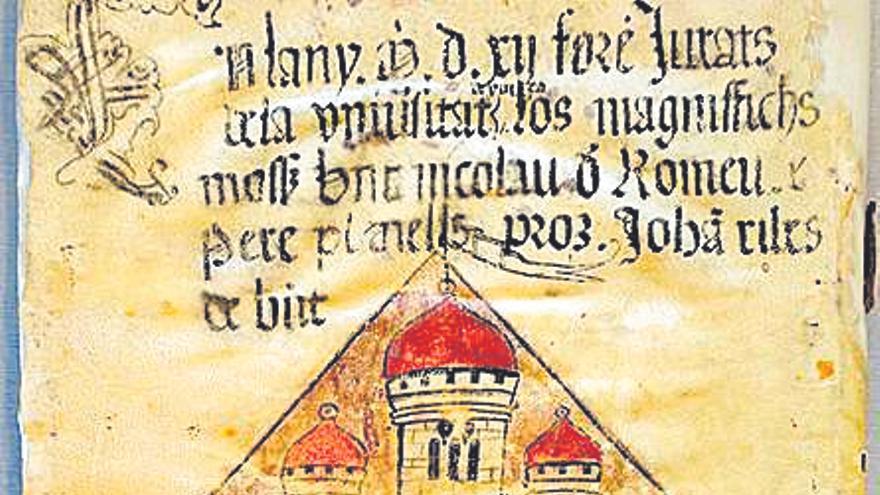 En lany. M. d. xij forē Jurats
de la vniūsitat, los magniffichs
moss̄ bnt nicolau d Romeu. e
pere planells proz. Johā ribes
de bnt